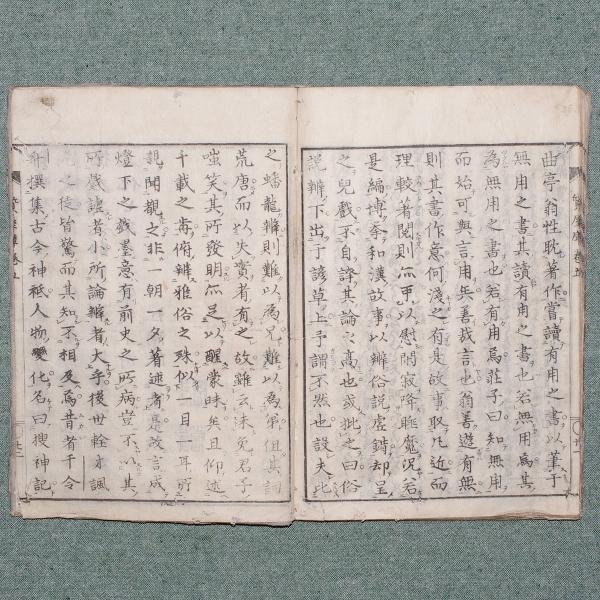 曲亭翁性耽著作嘗讀有用之書以于
無用之書其讀有用之書也若無用為其
為無用之書也若有用為莊子曰知無用
而始可與言用矣善哉言也翁善遊有無
則其書作意何淺之有是故事取凡近而
理較著閱則亦可以慰閑寂降睡魔況若
是編博和漢故事以辨俗說虛錯却呈
之兒戲不自誇其論之高也或批之曰俗
說辨下出于諺草上予謂不然也夫比
之蟠龍辨則難以為兄難以為弟但其詞
荒唐而以失實者有之故雖云未免君子
嗤笑其所發明亦足以醒蒙昧矣且仰述
千載之尚俯辨雅俗之殊似一目一耳所
親聞覩之非一朝一夕著述者是故言成
燈下之戯墨意有前史之所病豈不以其
所戯謔者小所論辨者大乎後世餘才諷
之徒皆驚而其知不相及焉昔者千令
升撰集古今神祇人物變化名曰搜神記